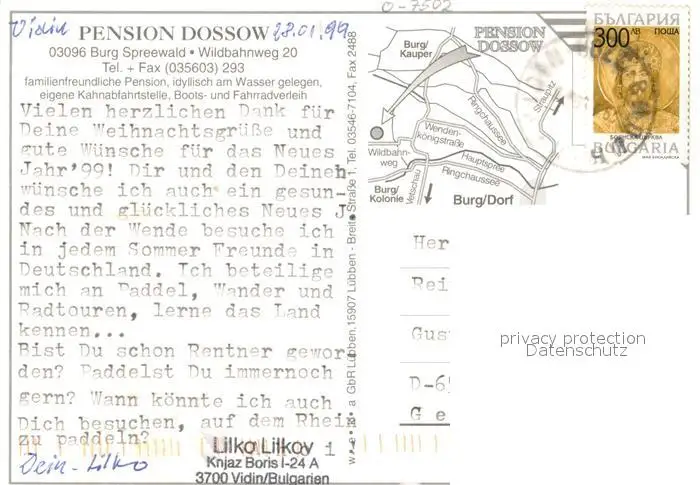 Vidin 28.01.99
PENSION DOSSOW
03096 Burg Spreewald • Wildbahnweg 20
Tel. + Fax (035603) 293
familienfreundliche Pension, idyllisch am Wasser gelegen,
eigene Kahnabfahrtstelle, Boots- und Fahrradverleih
Vielen herzlichen Dank für
Deine Weihnachtsgrüße und
gute Wünsche für das Neues
Jahr'99! Dir und den Deineh
wünsche ich auch ein gesun-
des und glückliches Neues J
Nach der Wende besuche ich
in jedem Sommer Freunde in
Deutschland. Ich beteilige
mich an Paddel, Wander und
Radtouren, lerne das Land
kennen...
Bist Du schon Rentner gewor
den? Paddelst Du immernoch
gern? Wann könnte ich auch
Dich besuchen, auf dem Rhein
zu paddeln?
Dein - Lilko
Lilko Lilkov
Knjaz Boris I-24 A
3700 Vidin/Bulgarien
GbR Lübben, 15907 Lübben - Breite Straße 1, Tel. 03546-7104, Fax 2488
O-7502
PENSION
DOSSOW
Burg/
Kauper
Ringchaussee
Straupitz
Wenden-
königstraße
Wildbahn-
weg
Hauptspree
Ringchaussee
Burg/
Kolonie
Vetschau
Burg/Dorf
БЪЛГАРИЯ
300 ЛВ ПОЩА
BULGARIA
Her
Rei
Gus
D-6
G e
privacy protection
Datenschutz